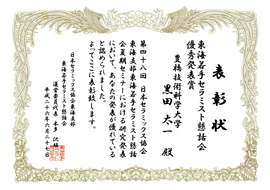 表彰状
東海若手セラミスト懇話会
優秀発表賞
豊橋技術科学大学
黒田太一 殿
第四十八回 日本セラミックス協会
東海支部東海若手セラミスト懇話
会夏期セミナーにおける研究発表
において、あなたの発表が優れている
と認められました。
よってここに表彰致します。
平成二十六年六月二十七日
日本セラミックス協会
東海若手セラミスト懇話会
運営委員代表 本多沢雄